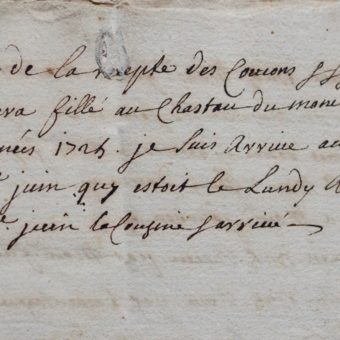 de la recepte des Coucons
era fillé au Chastau du mon
nées 172 je suis Arrivé au
juin quy estoit le Lundy
juin la Cousine arrivé